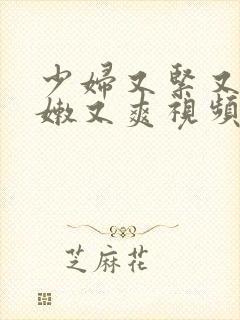 少婦又緊又
嫩又爽視頻
芝麻花